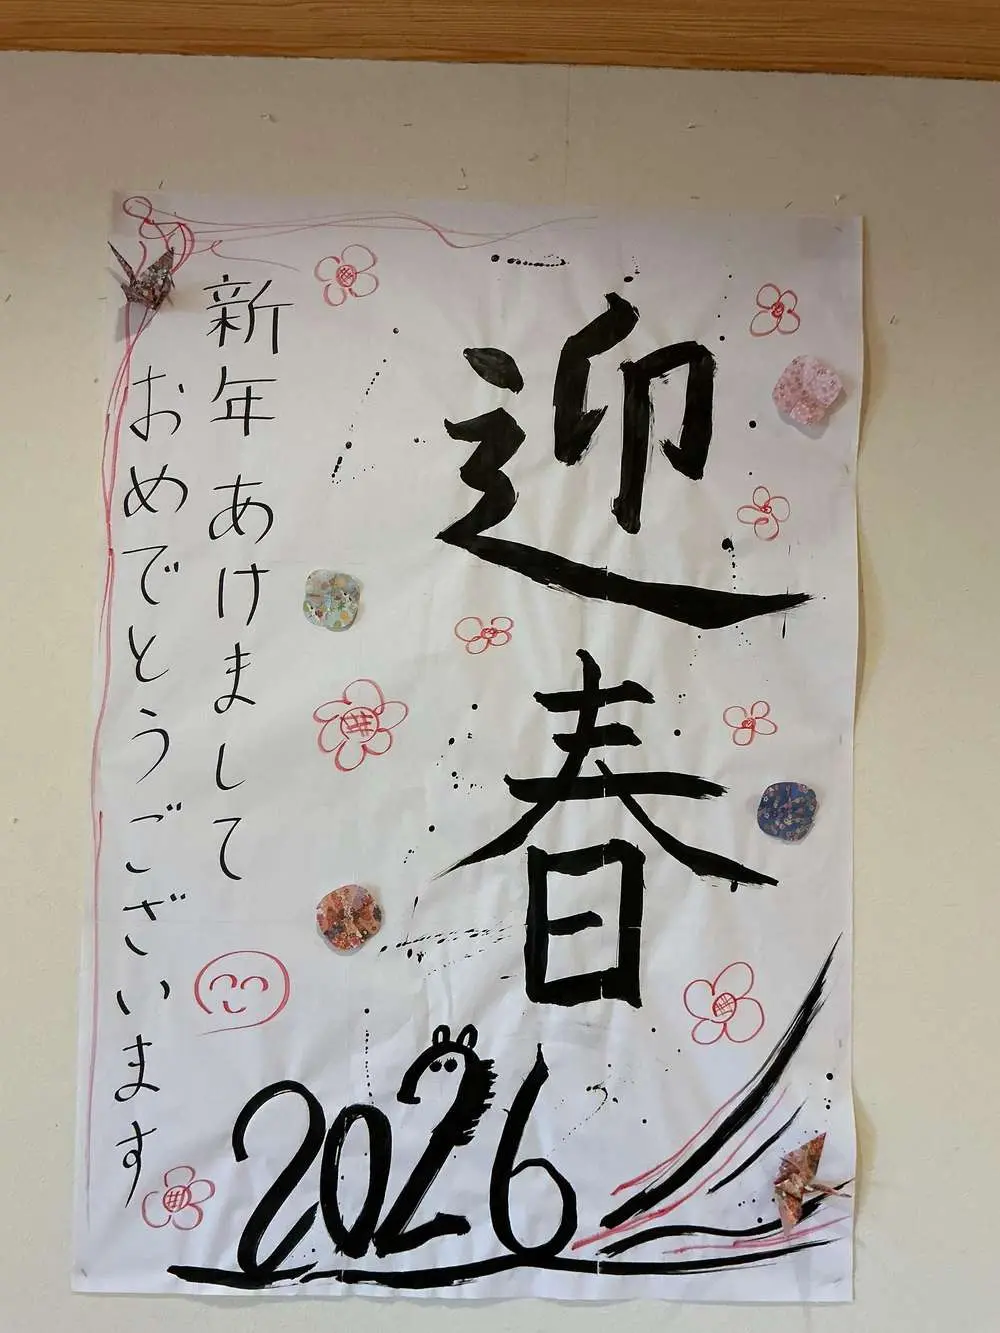 迎春
新年あけまして
おめでとうございます
2026